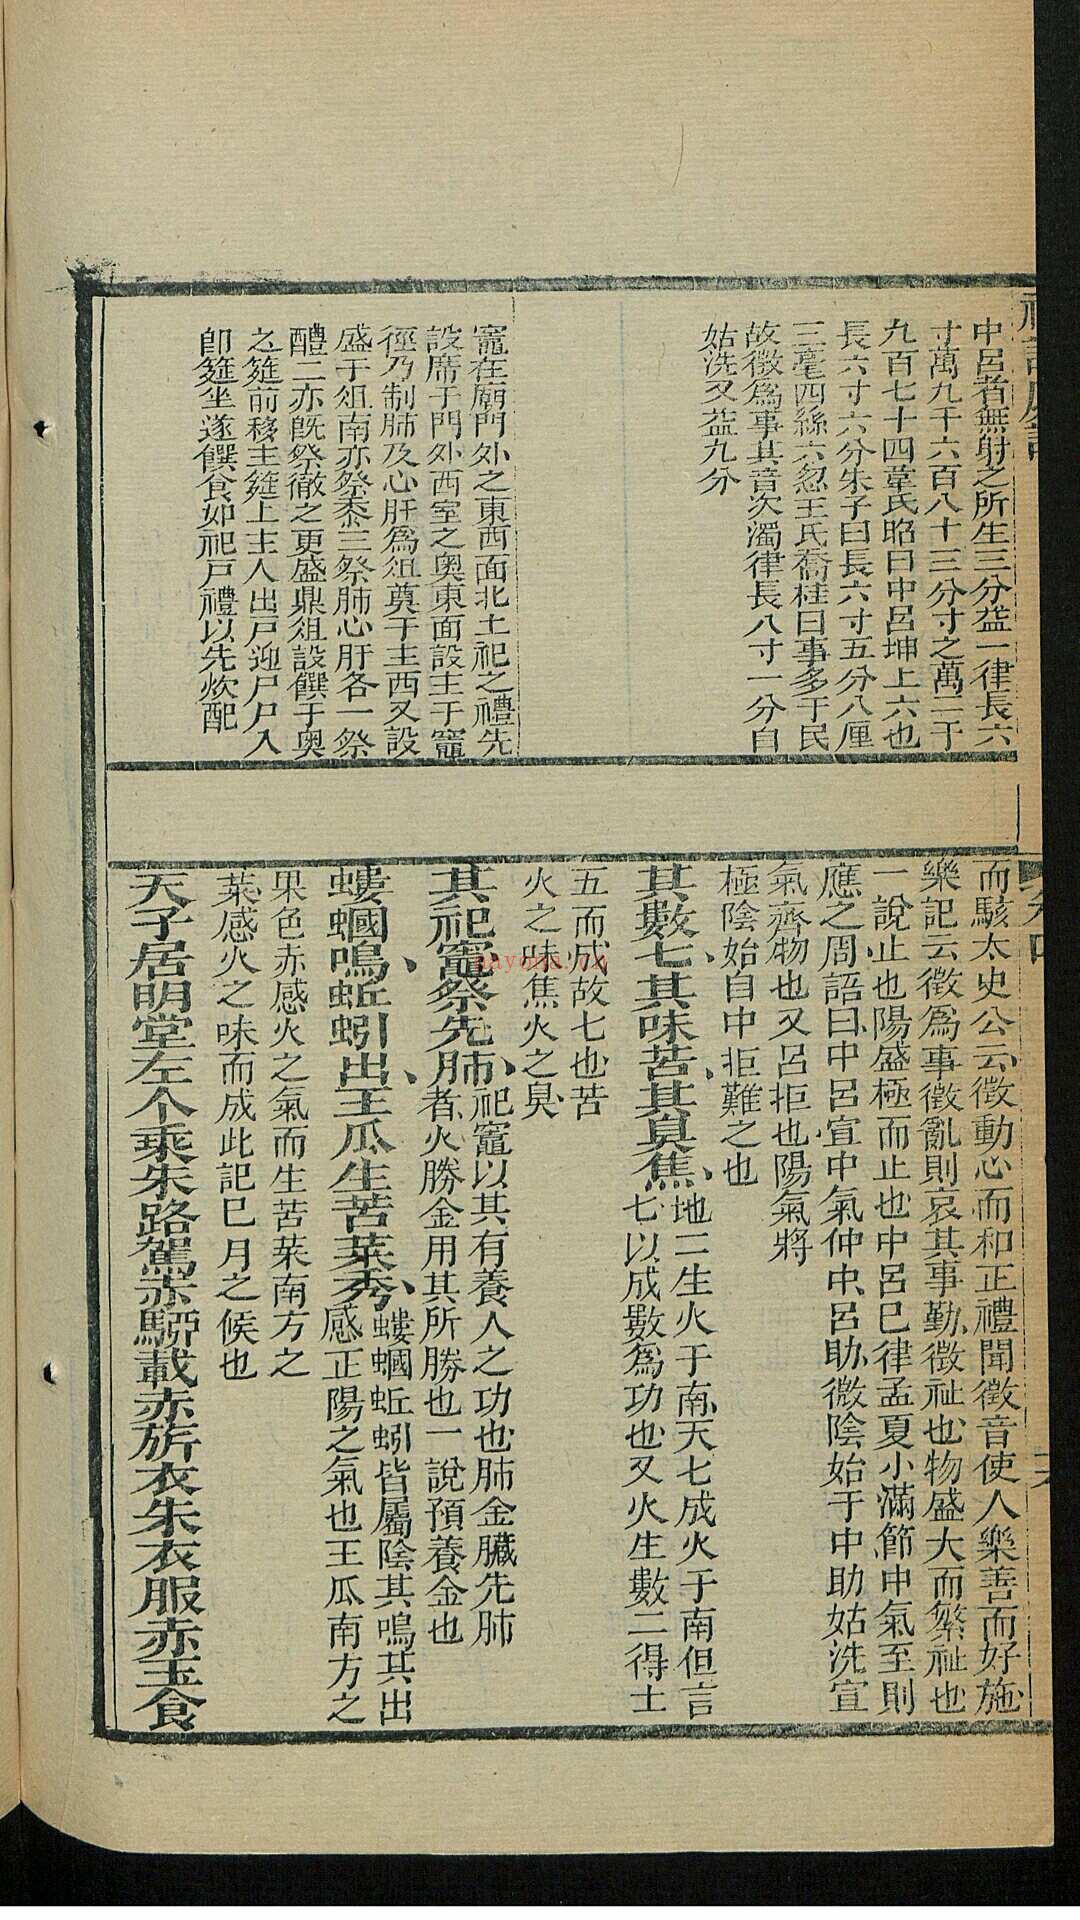 中呂者無射之所生三分益一律長六
寸萬九千六百八十三分寸之萬二千
九百七十四韋氏昭曰中呂坤上六也
長六寸六分朱子曰長六寸五分八厘
三毫四絲六忽王氏喬桂曰事多于民
故徵為事其音次濁律長八寸一分自
姑洗又益九分
竈在廟門外之東西面北上祀之禮先
設席于門外西室之奧東面設主于竈
徑乃制肺及心肝為俎奠于主西又設
盛于俎南亦祭黍三祭肺心肝各一祭
醴二亦旣祭徹之更盛鼎俎設饌于奧
之筵前移主筵上主人出戶迎尸尸入
卽筵坐遂饌食如祀戶禮以先炊配
而駭太史公云徵動心而和正禮聞徵音使人樂善而好施
樂記云徵為事徵亂則哀其事勤徵祉也物盛大而繁祉也
一說止也陽盛極而止也中呂巳律孟夏小滿節中氣至則
應之周語曰中呂宣中氣仲中呂助微陰始于中助姑洗宣
氣齊物也又呂拒也陽氣將
極陰始自中拒難之也
其數七其味苦其臭焦地二生火于南天七成火于南但言
七以成數為功也又火生數二得土
五而成故七也苦
火之味焦火之臭
其祀竈祭先肺祀竈以其有養人之功也肺金臟先肺
者火勝金用其所勝也一說預養金也
螻蟈鳴蚯蚓出王瓜生苦菜秀螻蟈蚯蚓皆屬陰其鳴其出
感正陽之氣也王瓜南方之
果色赤感火之氣而生苦菜南方之
菜感火之味而成此記巳月之候也
天子居明堂左个乘朱路駕赤駵載赤旂衣朱衣服赤玉食